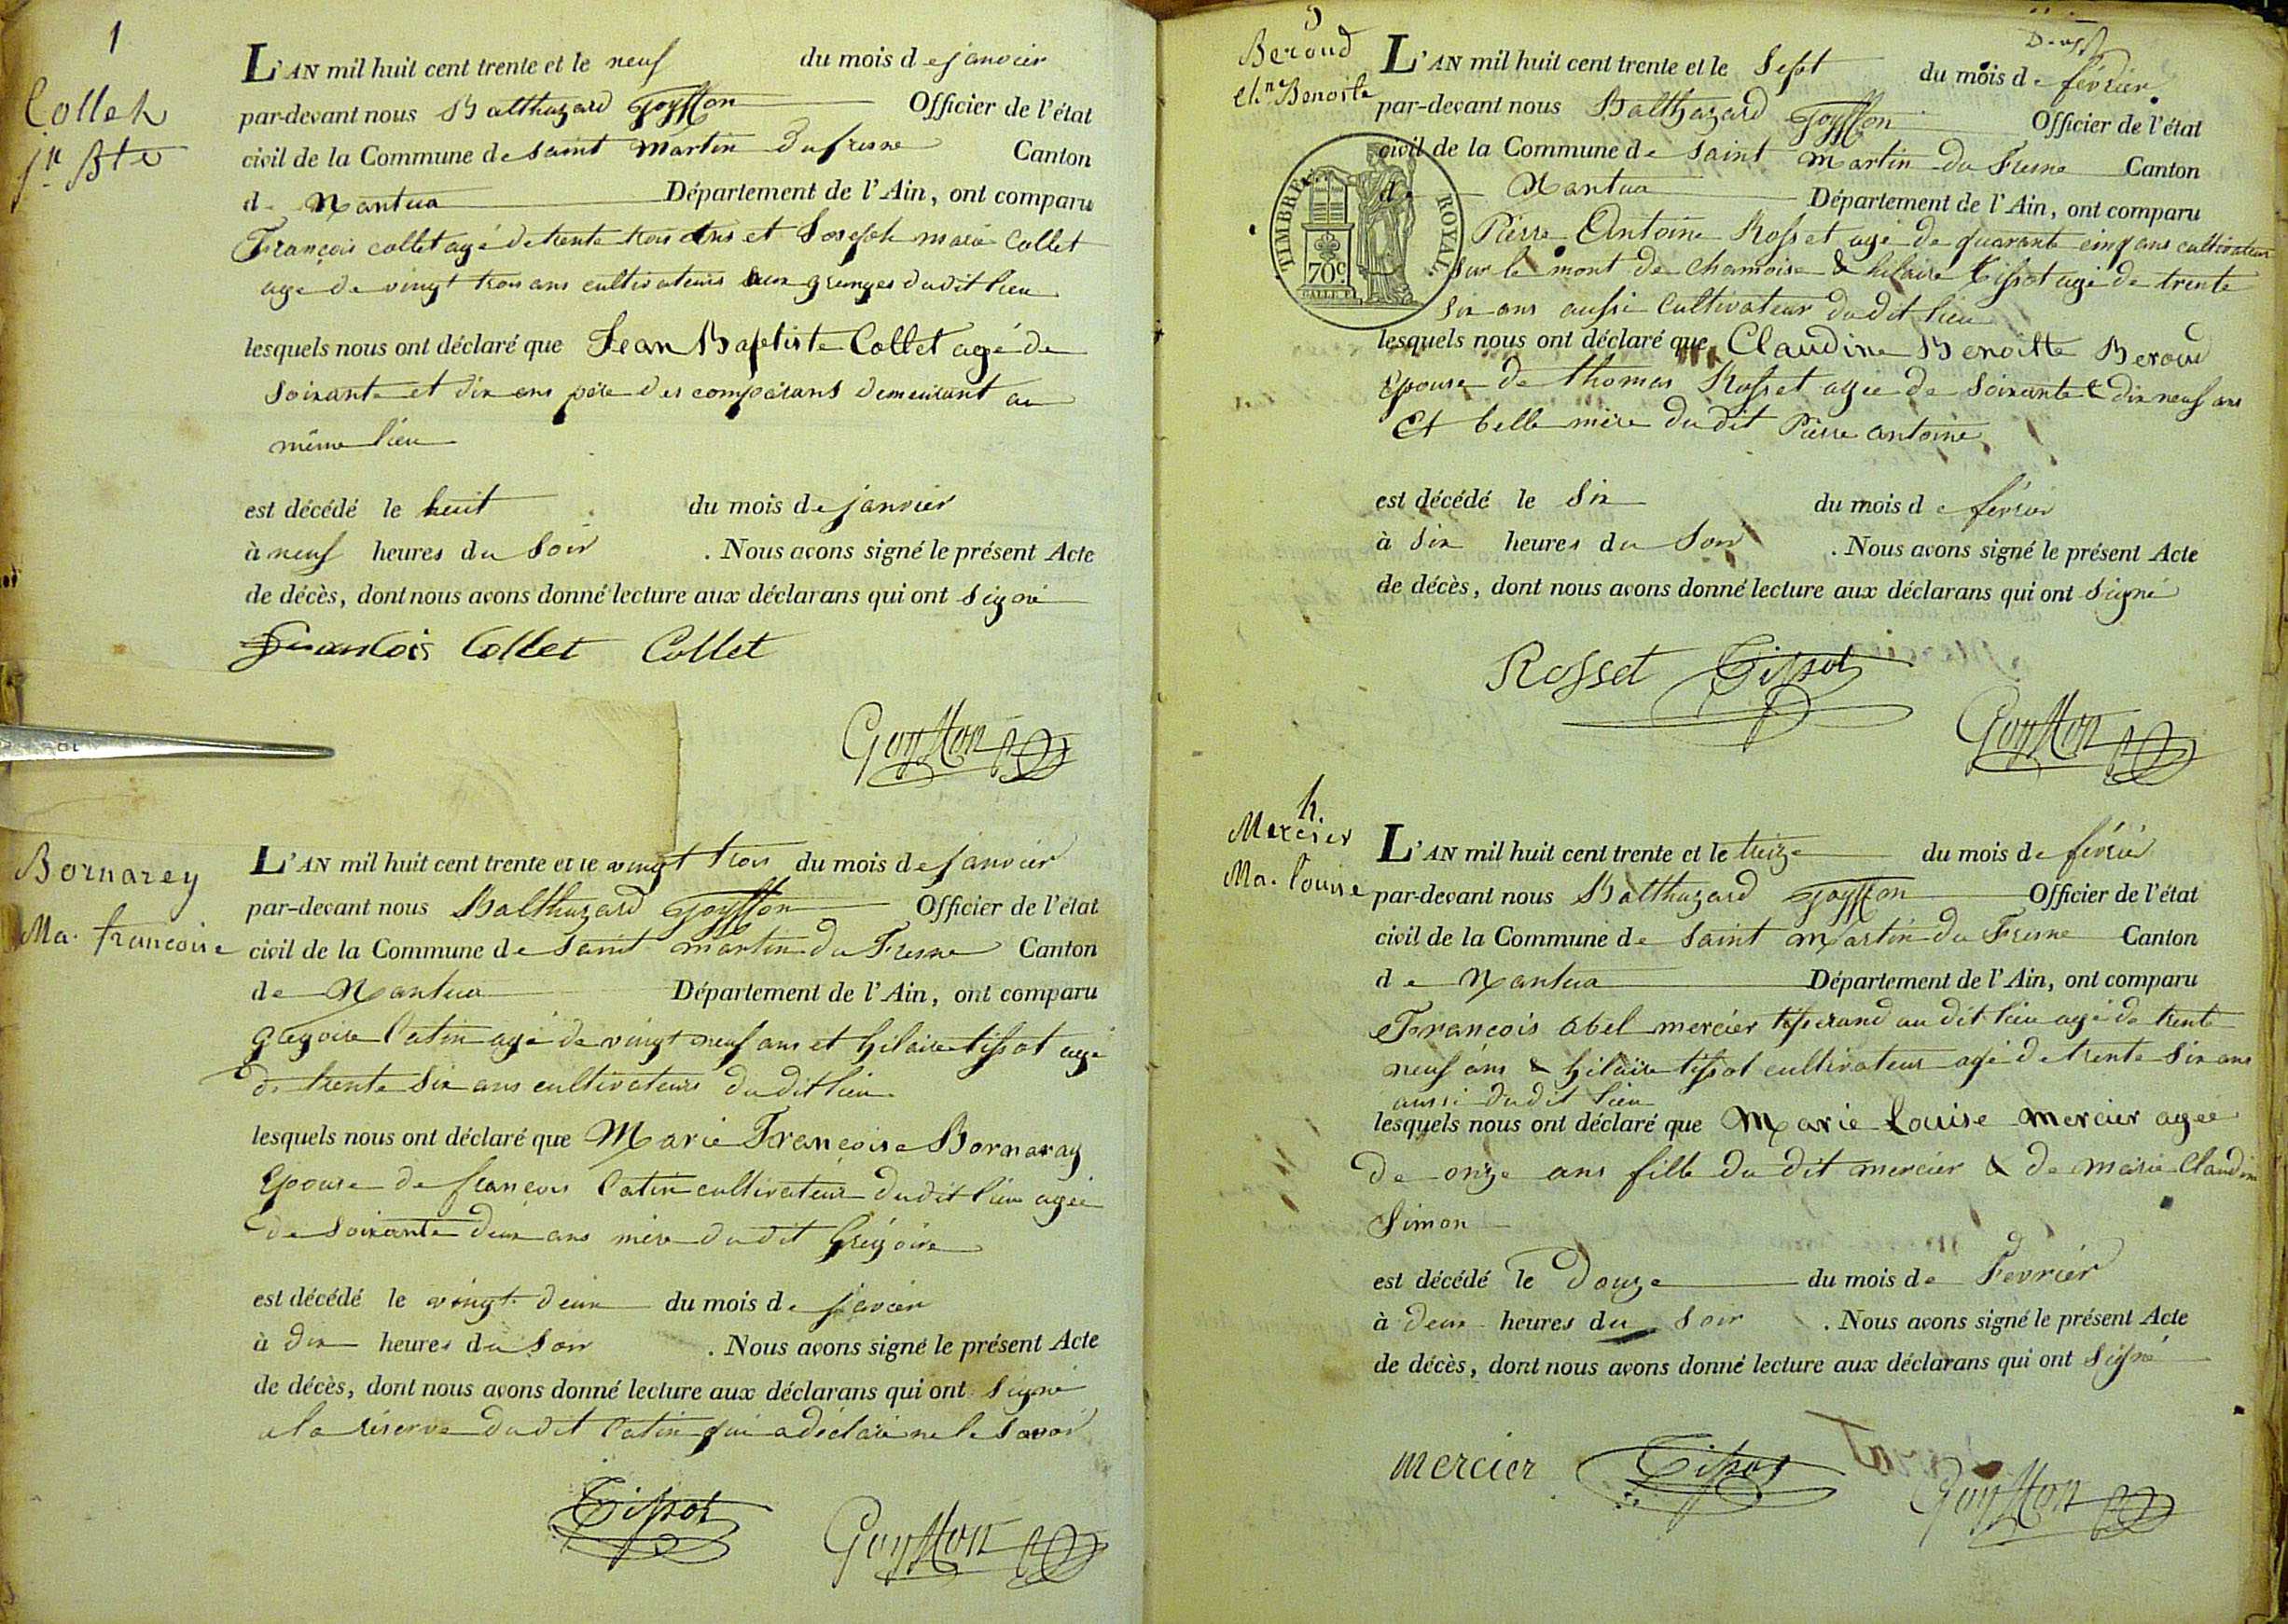 1
Collet
jn Bte
L'AN mil huit cent trente et le neuf du mois de janvier
par-devant nous Balthazard Goyffon Officier de l'état
civil de la Commune de saint martin Dufresne Canton
de Nantua Département de l'Ain, ont comparu
François collet agé de trente trois ans et Joseph marie Collet
agé de vingt trois ans cultivateurs aux granges dudit lieu
lesquels nous ont déclaré que Jean Baptiste Collet agé de
soixante et dix ans père des comparans demeurant au
même lieu
est décédé le huit du mois de janvier
à neuf heures du soir . Nous avons signé le présent Acte
de décès, dont nous avons donné lecture aux déclarans qui ont signé
francois Collet Collet
Goyffon
Bornarey
Ma. francoise
L'AN mil huit cent trente et le vingt trois du mois de janvier
par-devant nous Balthazard Goyffon Officier de l'état
civil de la Commune de saint martin du Fresne Canton
de Nantua Département de l'Ain, ont comparu
grégoire Catin agé de vingt neuf ans et hilaire tissot agé
de trente six ans cultivateurs dudit lieu
lesquels nous ont déclaré que Marie Françoise Bornaray
Epouse de françois Catin cultivateur dudit lieu agée
de soixante deux ans mère dudit Grégoire
est décédé le vingt deux du mois de janvier
à dix heures du soir . Nous avons signé le présent Acte
de décès, dont nous avons donné lecture aux déclarans qui ont signé
a la réserve dudit Catin qui a déclaré ne le savoir
Tissot Goyffon
3
Beroud
Cl.ne Benoite
L'AN mil huit cent trente et le sept du mois de février
par-devant nous Balthazard Goyffon Officier de l'état
civil de la Commune de saint martin du Fresne Canton
de Nantua Département de l'Ain, ont comparu
TIMBRE ROYAL
70c
Pierre Antoine Rosset agé de quarante cinq ans cultivateur
sur le mont de chamoise & hilaire Tissot agé de trente
six ans aussi cultivateur dudit lieu
lesquels nous ont déclaré que Claudine Benoitte Beroud
Epouse de thomas Rosset agée de soixante & dix neuf ans
Et belle mère dudit Pierre antoine
est décédé le six du mois de février
à six heures du soir . Nous avons signé le présent Acte
de décès, dont nous avons donné lecture aux déclarans qui ont signé
Rosset Tissot
Goyffon
4.
Mercier
Ma. louise
L'AN mil huit cent trente et le treize du mois de février
par-devant nous Balthazard Goyffon Officier de l'état
civil de la Commune de saint martin du Fresne Canton
de Nantua Département de l'Ain, ont comparu
François abel mercier tisserand au dit lieu agé de trente
neuf ans & hilaire tissot cultivateur agé de trente six ans
aussi dudit lieu
lesquels nous ont déclaré que Marie Louise mercier agée
de onze ans fille du dit mercier & de marie Claudine
Simon
est décédé le douze du mois de Fevrier
à deux heures du soir . Nous avons signé le présent Acte
de décès, dont nous avons donné lecture aux déclarans qui ont signé
mercier Tissot Goyffon